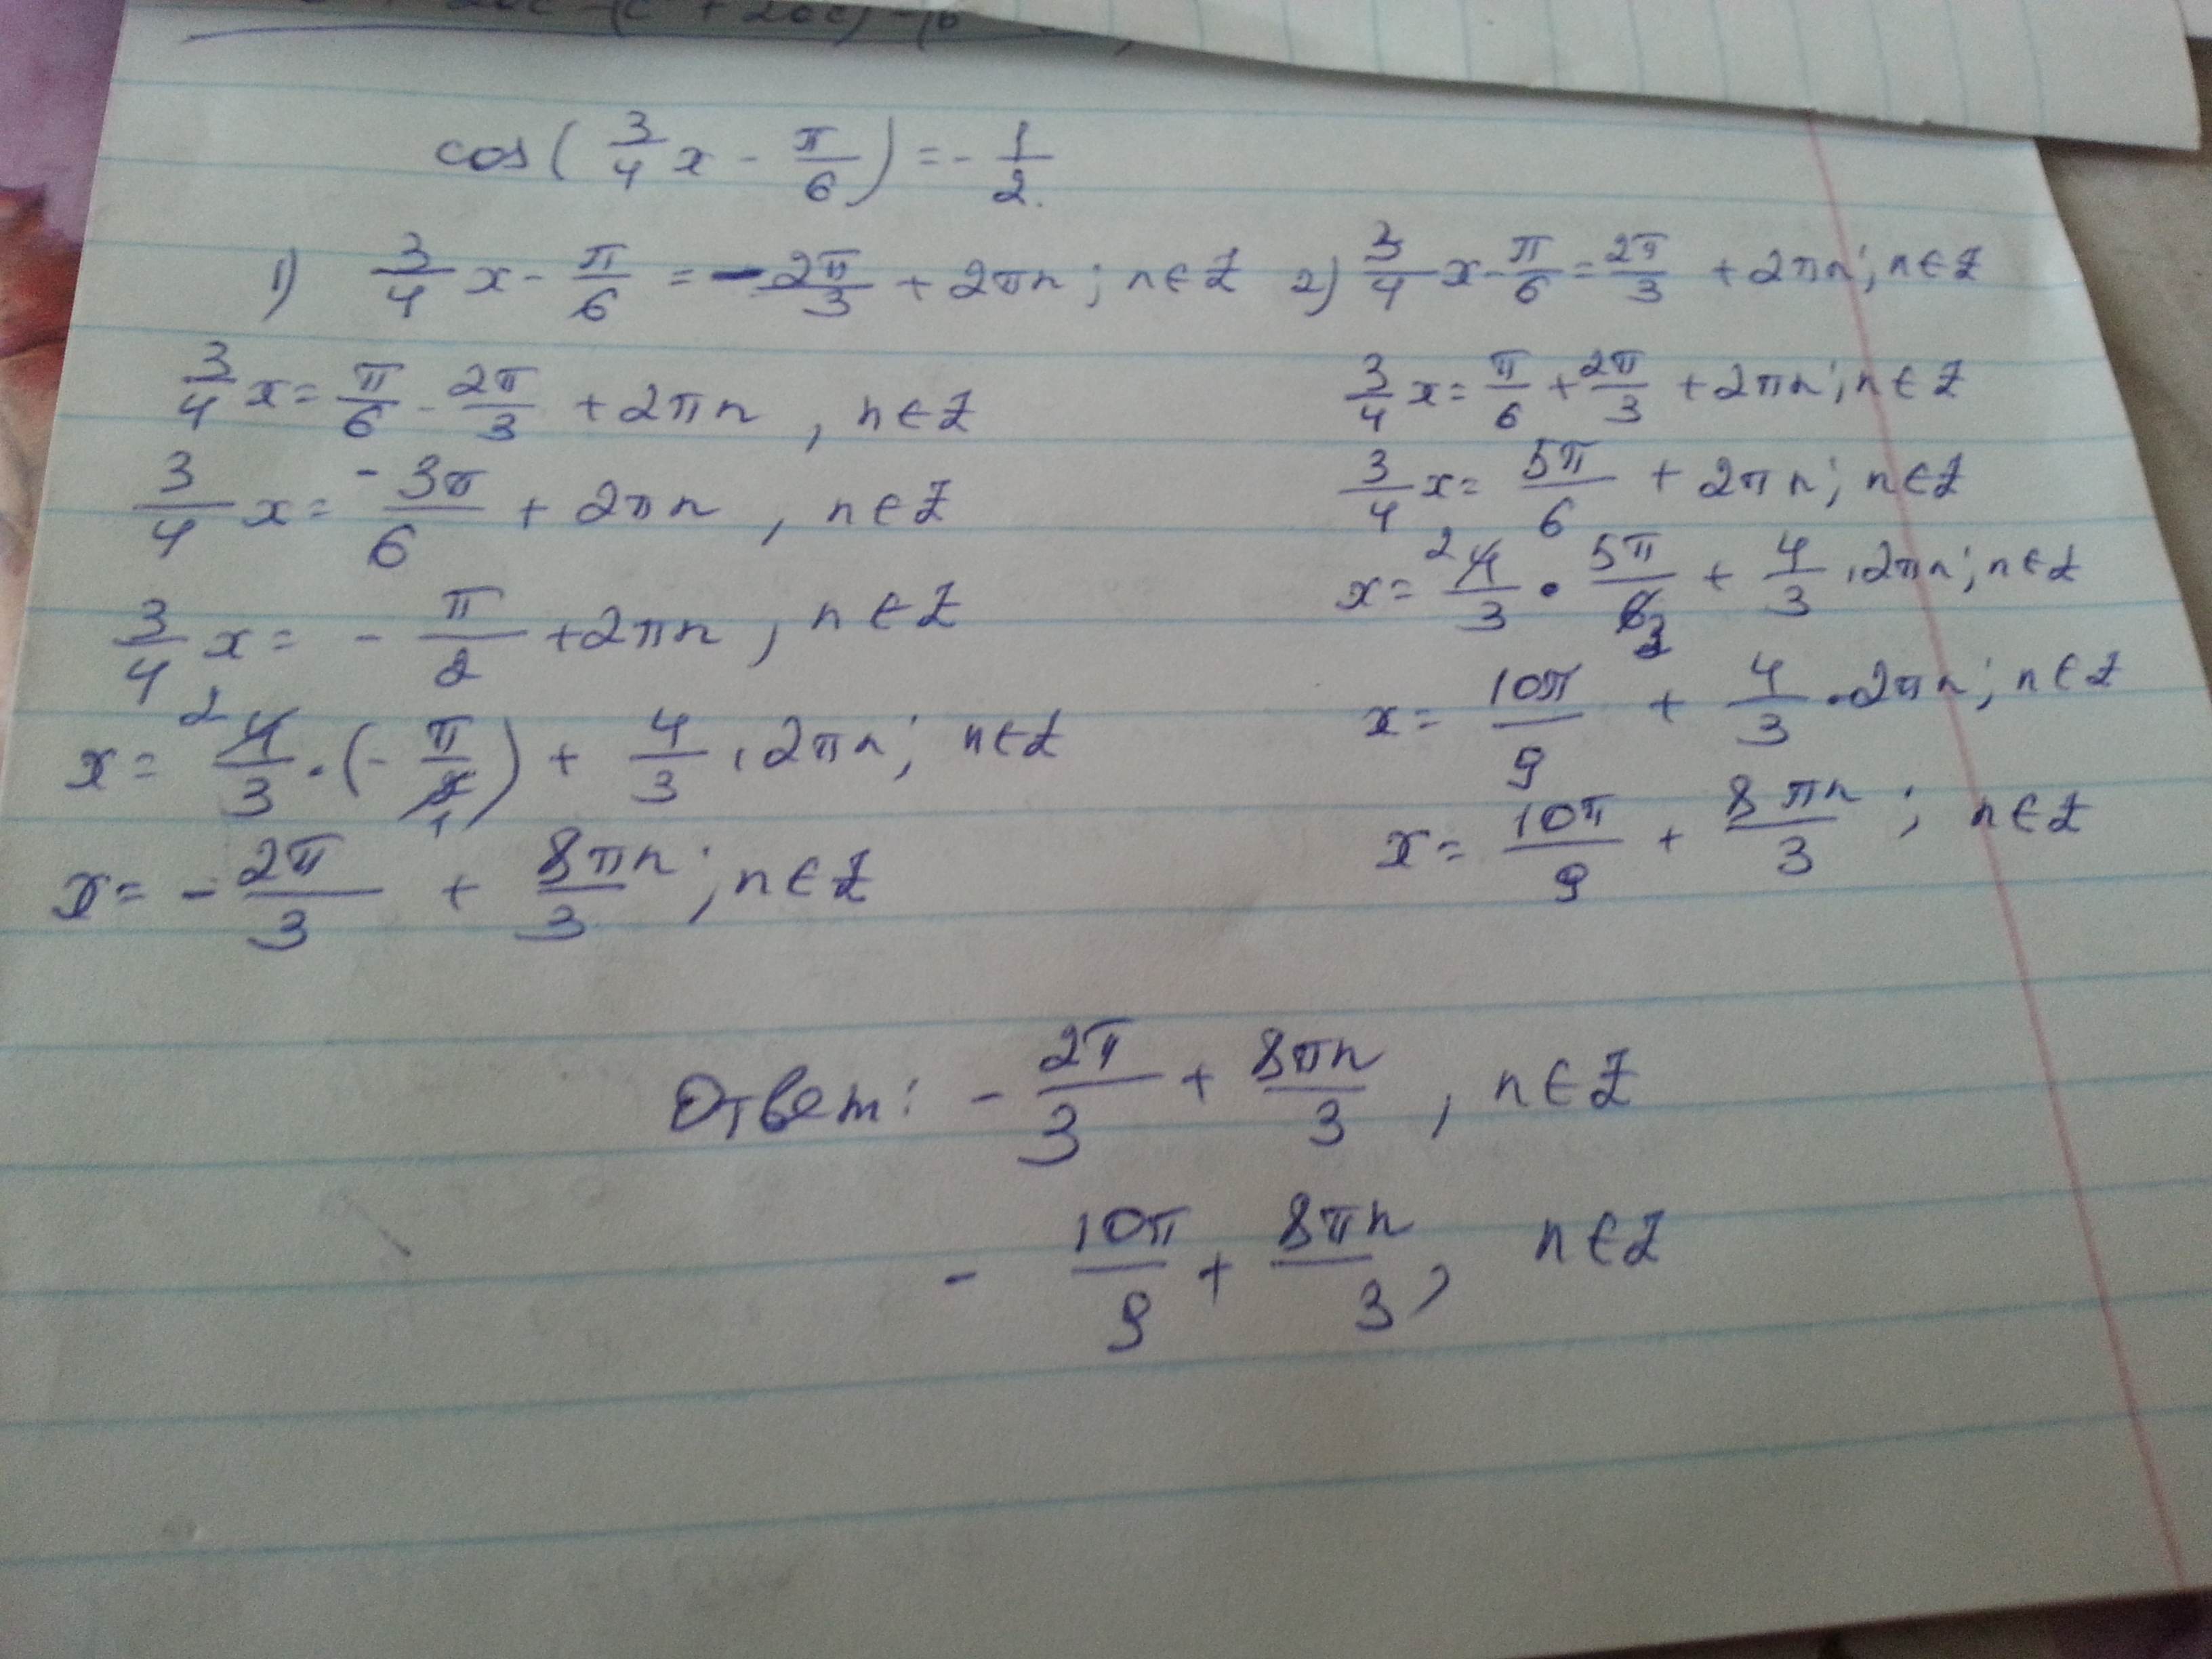 cos(3/4 x - π/6) = - 1/2.
1) 3/4 x - π/6 = - 2π/3 + 2πn; n∈Z
3/4 x = π/6 - 2π/3 + 2πn, n∈Z
3/4 x = -3π/6 + 2πn, n∈Z
3/4 x = - π/2 + 2πn, n∈Z
x = 4/3 · (- π/2) + 4/3 · 2πn; n∈Z
x = - 2π/3 + 8πn/3; n∈Z
2) 3/4 x - π/6 = 2π/3 + 2πn; n∈Z
3/4 x = π/6 + 2π/3 + 2πn; n∈Z
3/4 x = 5π/6 + 2πn; n∈Z
x = 4/3 · 5π/6 + 4/3 · 2πn; n∈Z
x = 10π/9 + 4/3 · 2πn; n∈Z
x = 10π/9 + 8πn/3; n∈Z
Ответ: - 2π/3 + 8πn/3, n∈Z
- 10π/9 + 8πn/3, n∈Z